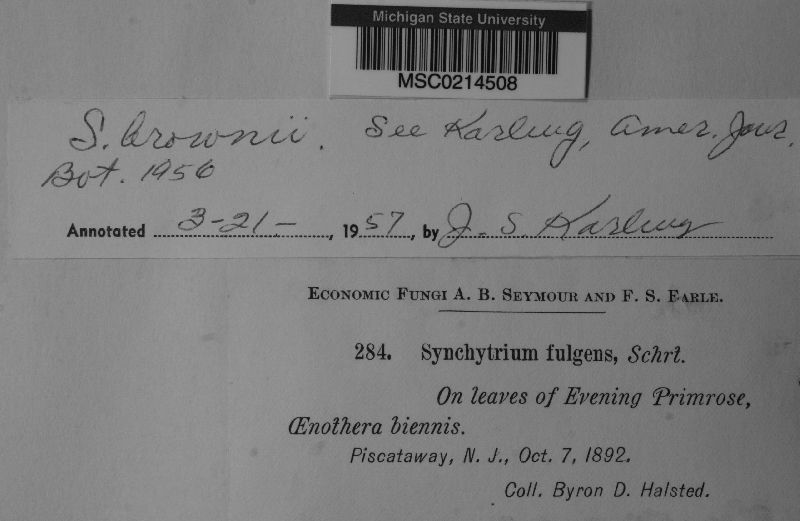 Michigan State University
MSC0214508
S. brownii. See Karling, Amer. Jour.
Bot. 1956
Annotated 3-21-, 1957, by J. S. Karling
ECONOMIC FUNGI A. B. SEYMOUR AND F. S. EARLE.
284. Synchytrium fulgens, Schrt.
On leaves of Evening Primrose,
Œnothera biennis.
Piscataway, N. J., Oct. 7, 1892.
Coll. Byron D. Halsted.